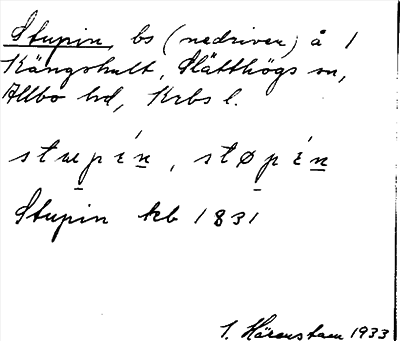 Stupin, bs (nedriven) å 1
Kängshult, Slätthögs sn,
Allbo hd, Krbs l.
stᵫpɛ́n, støpɛ́n
Stupin kb 1831
I. Härenstam 1933